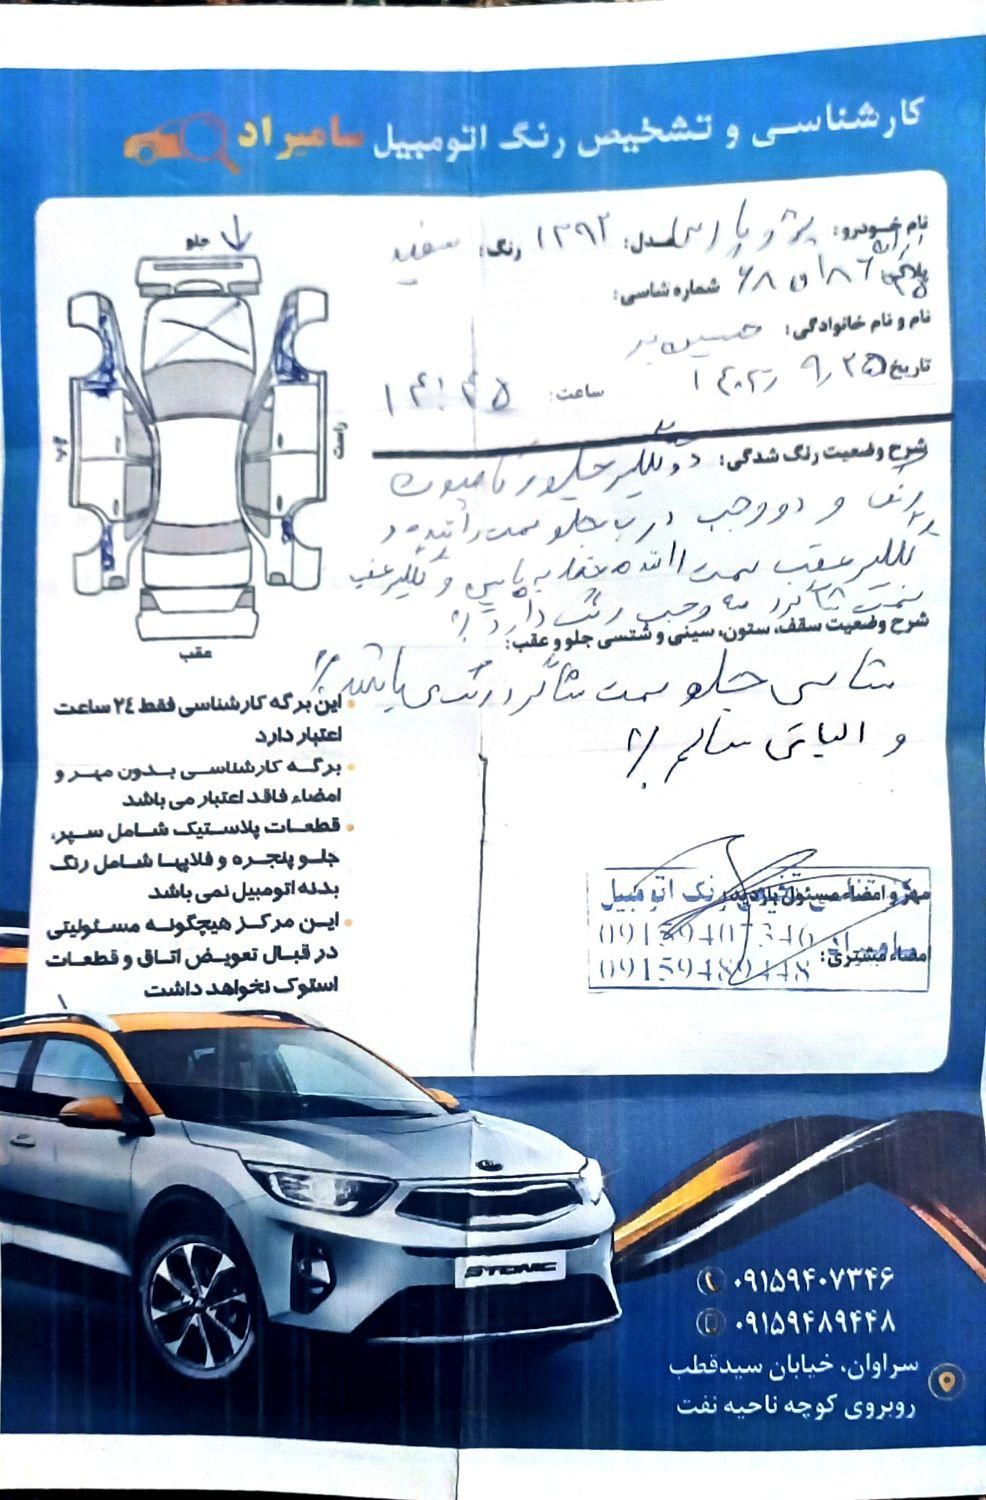 کارشناسی و تشخیص رنگ اتومبیل سامیراد
نام خودرو: پژو پارس مدل: ۱۳۹۲ رنگ: سفید
پلاک: ۶۸ ق ۱۸۶ شماره شاسی:
نام و نام خانوادگی: حسین بر
تاریخ: ۱۴۰۲/۹/۲۵ ساعت: ۱۴:۴۵
جلو
چپ
راست
عقب
شرح وضعیت رنگ شدگی: دو گلگیر جلو و کاپوت
رنگ و دو وجب درب جلو سمت راننده و
گلگیر عقب سمت راننده به پایین و گلگیر عقب
سمت شاگرد سه وجب رنگ دارد
شرح وضعیت سقف، ستون، سینی و شتسی جلو و عقب:
شاسی جلو سمت شاگرد رنگ می‌باشد
و الباقی سالم
این برگه کارشناسی فقط ۲٤ ساعت
اعتبار دارد
برگه کارشناسی بدون مهر و
امضاء فاقد اعتبار می باشد
قطعات پلاستیک شامل سپر،
جلو پنجره و فلاپها شامل رنگ
بدنه اتومبیل نمی باشد
این مرکز هیچگونه مسئولیتی
در قبال تعویض اتاق و قطعات
استوک نخواهد داشت
مهر و امضاء مسئول بازدید:
رنگ اتومبیل
09159407346
امضاء مشتری:
09159489448
STONIC
۰۹۱۵۹۴۰۷۳۴۶
۰۹۱۵۹۴۸۹۴۴۸
سراوان، خیابان سیدقطب
روبروی کوچه ناحیه نفت